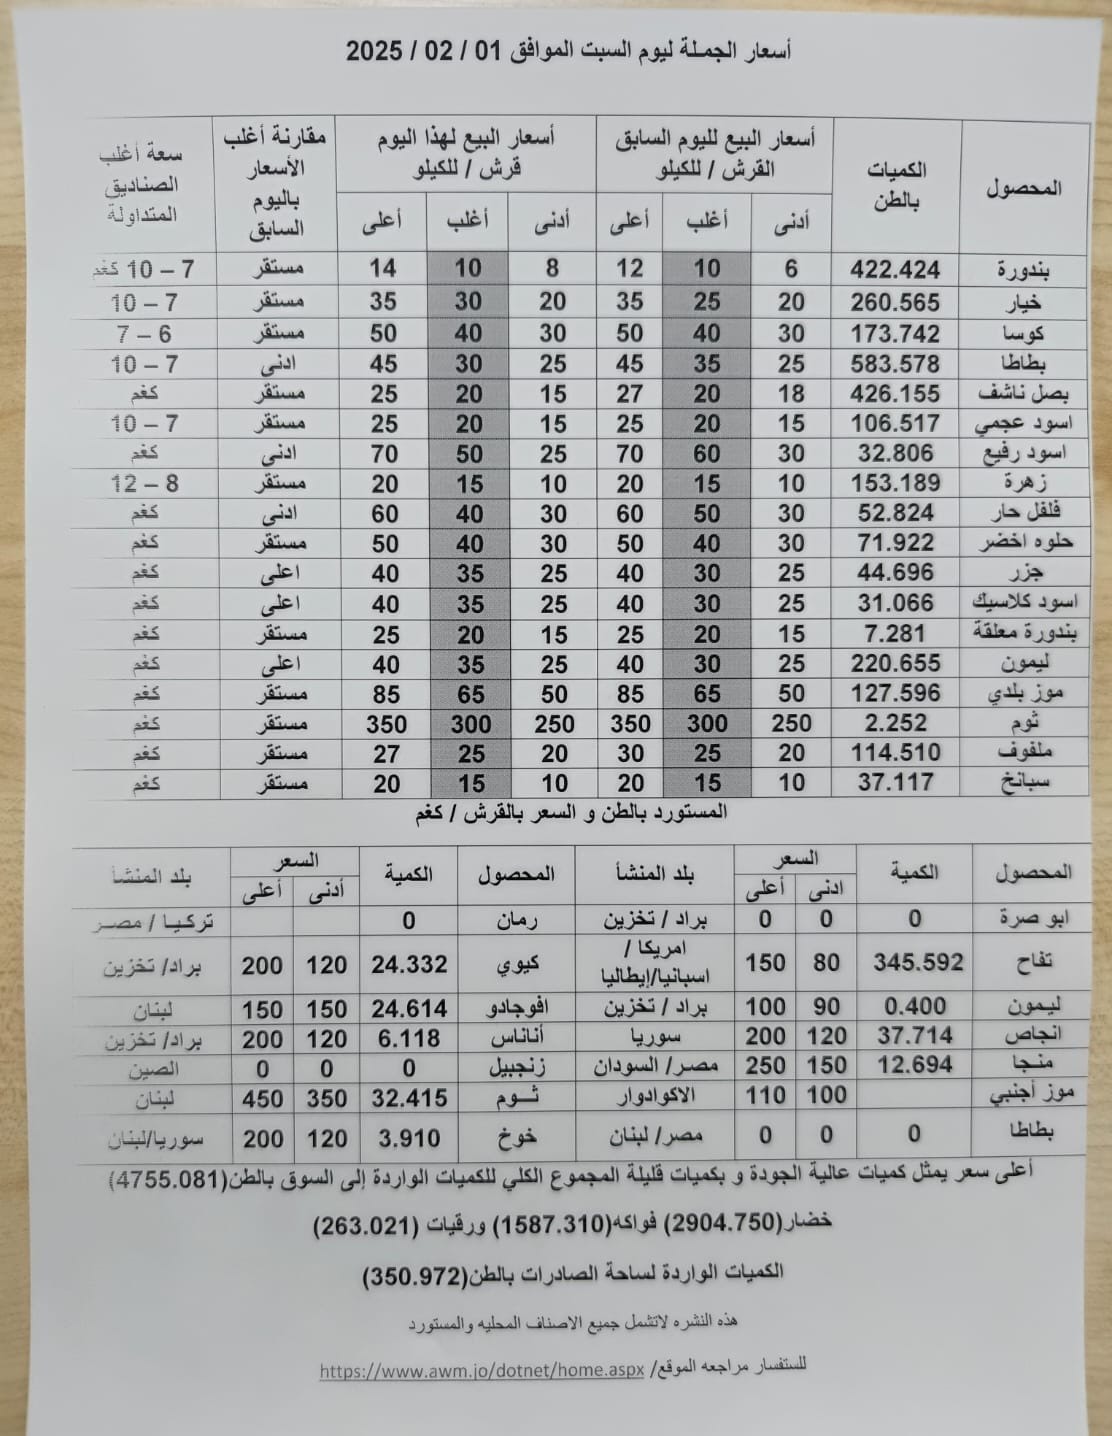 أسعار الجملة ليوم السبت الموافق 01 / 02 / 2025
المحصول الكميات بالطن أسعار البيع لليوم السابق القرش / للكيلو أسعار البيع لهذا اليوم قرش / للكيلو مقارنة أغلب الأسعار باليوم السابق سعة أغلب الصناديق المتداولة
أدنى أغلب أعلى أدنى أغلب أعلى
بندورة 422.424 6 10 12 8 10 14 مستقر 7 – 10 كغم
خيار 260.565 20 25 35 20 30 35 مستقر 7 – 10
كوسا 173.742 30 40 50 30 40 50 مستقر 6 – 7
بطاطا 583.578 25 35 45 25 30 45 ادنى 7 – 10
بصل ناشف 426.155 18 20 27 15 20 25 مستقر كغم
اسود عجمي 106.517 15 20 25 15 20 25 مستقر 7 – 10
اسود رفيع 32.806 30 60 70 25 50 70 ادنى كغم
زهرة 153.189 10 15 20 10 15 20 مستقر 8 – 12
فلفل حار 52.824 30 50 60 30 40 60 ادنى كغم
حلوه اخضر 71.922 30 40 50 30 40 50 مستقر كغم
جزر 44.696 25 30 40 25 35 40 اعلى كغم
اسود كلاسيك 31.066 25 30 40 25 35 40 اعلى كغم
بندورة معلقة 7.281 15 20 25 15 20 25 مستقر كغم
ليمون 220.655 25 30 40 25 35 40 اعلى كغم
موز بلدي 127.596 50 65 85 50 65 85 مستقر كغم
ثوم 2.252 250 300 350 250 300 350 مستقر كغم
ملفوف 114.510 20 25 30 20 25 27 مستقر كغم
سبانخ 37.117 10 15 20 10 15 20 مستقر كغم
المستورد بالطن و السعر بالقرش / كغم
المحصول الكمية السعر بلد المنشأ المحصول الكمية السعر بلد المنشأ
ادنى أعلى أدنى أعلى
ابو صرة 0 0 0 براد / تخزين رمان 0 تركيا / مصر
تفاح 345.592 80 150 امريكا / اسبانيا/إيطاليا كيوي 24.332 120 200 براد/ تخزين
ليمون 0.400 90 100 براد / تخزين افوجادو 24.614 150 150 لبنان
انجاص 37.714 120 200 سوريا أناناس 6.118 120 200 براد/ تخزين
منجا 12.694 150 250 مصر/ السودان زنجبيل 0 0 0 الصين
موز أجنبي 100 110 الاكوادوار ثوم 32.415 350 450 لبنان
بطاطا 0 0 0 مصر/ لبنان خوخ 3.910 120 200 سوريا/لبنان
أعلى سعر يمثل كميات عالية الجودة و بكميات قليلة المجموع الكلي للكميات الواردة إلى السوق بالطن(4755.081)
خضار(2904.750) فواكه(1587.310) ورقيات (263.021)
الكميات الواردة لساحة الصادرات بالطن(350.972)
هذه النشره لاتشمل جميع الاصناف المحليه والمستورد
للستفسار مراجعه الموقع/ https://www.awm.jo/dotnet/home.aspx